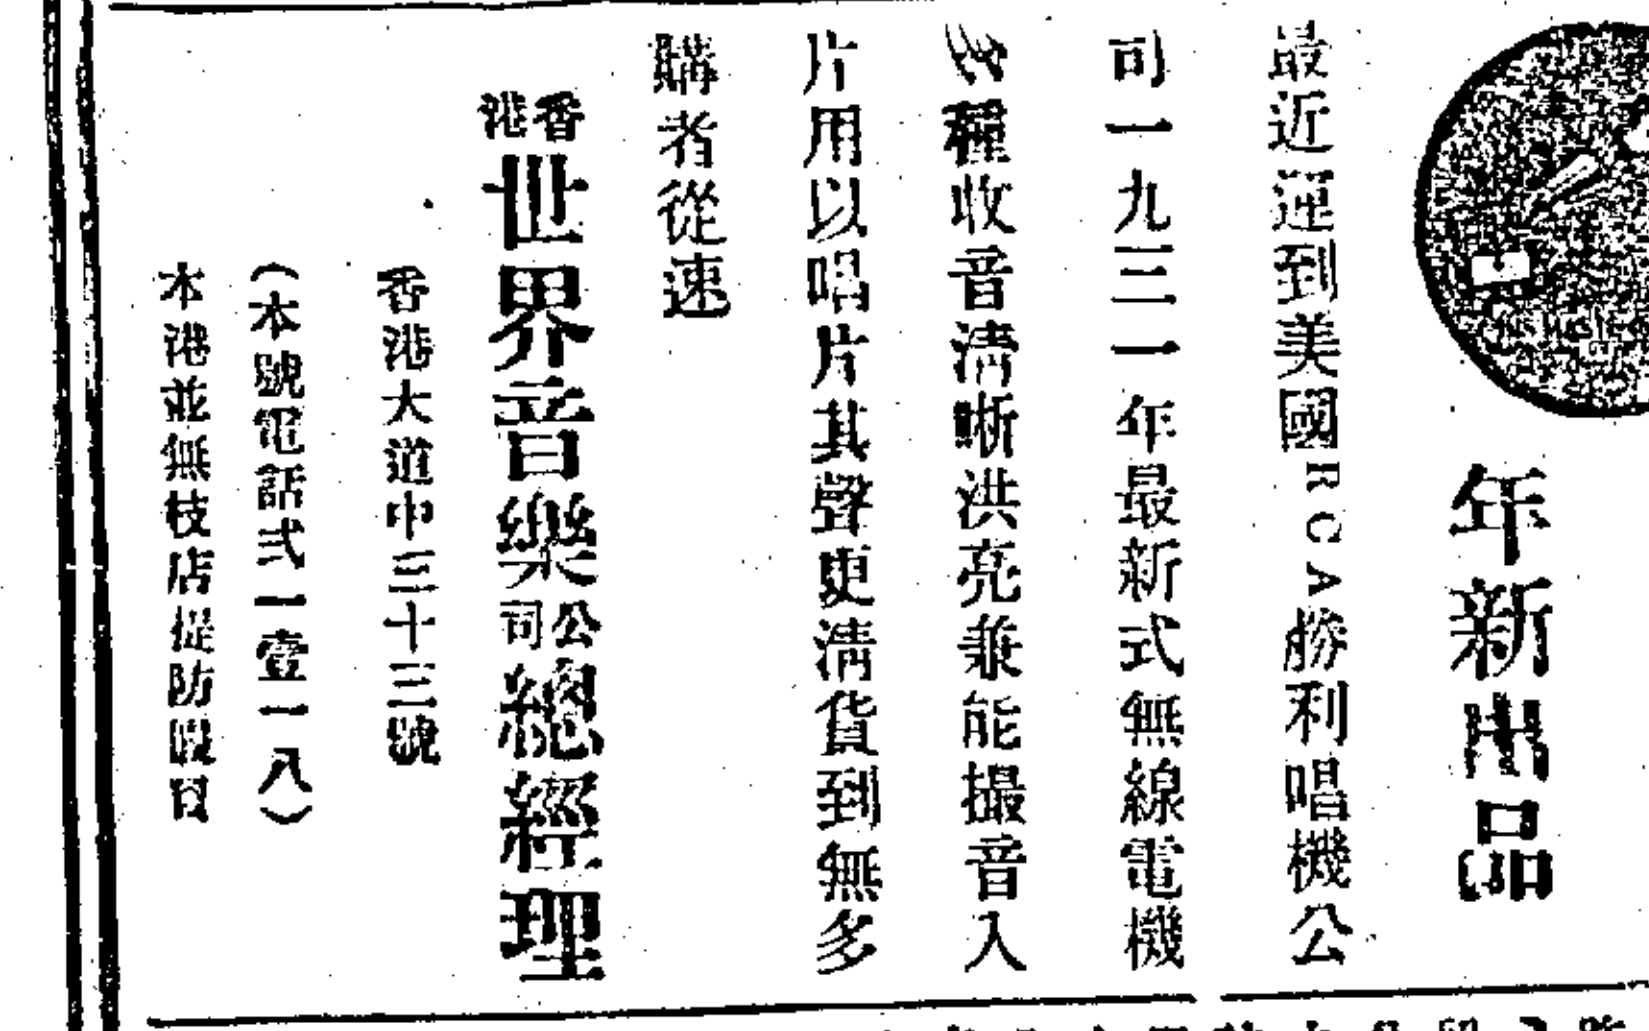 年新出品
最近運到美國RCA勝利唱機公
司一九三一年最新式無線電機
種收音清晰洪亮兼能撮音入
片用以唱片其聲更清貨到無多
購者從速
香港世界音樂公司總經理
香港大道中三十三號
(本號電話弍一壹一八)
本港並無枝店提防假冒